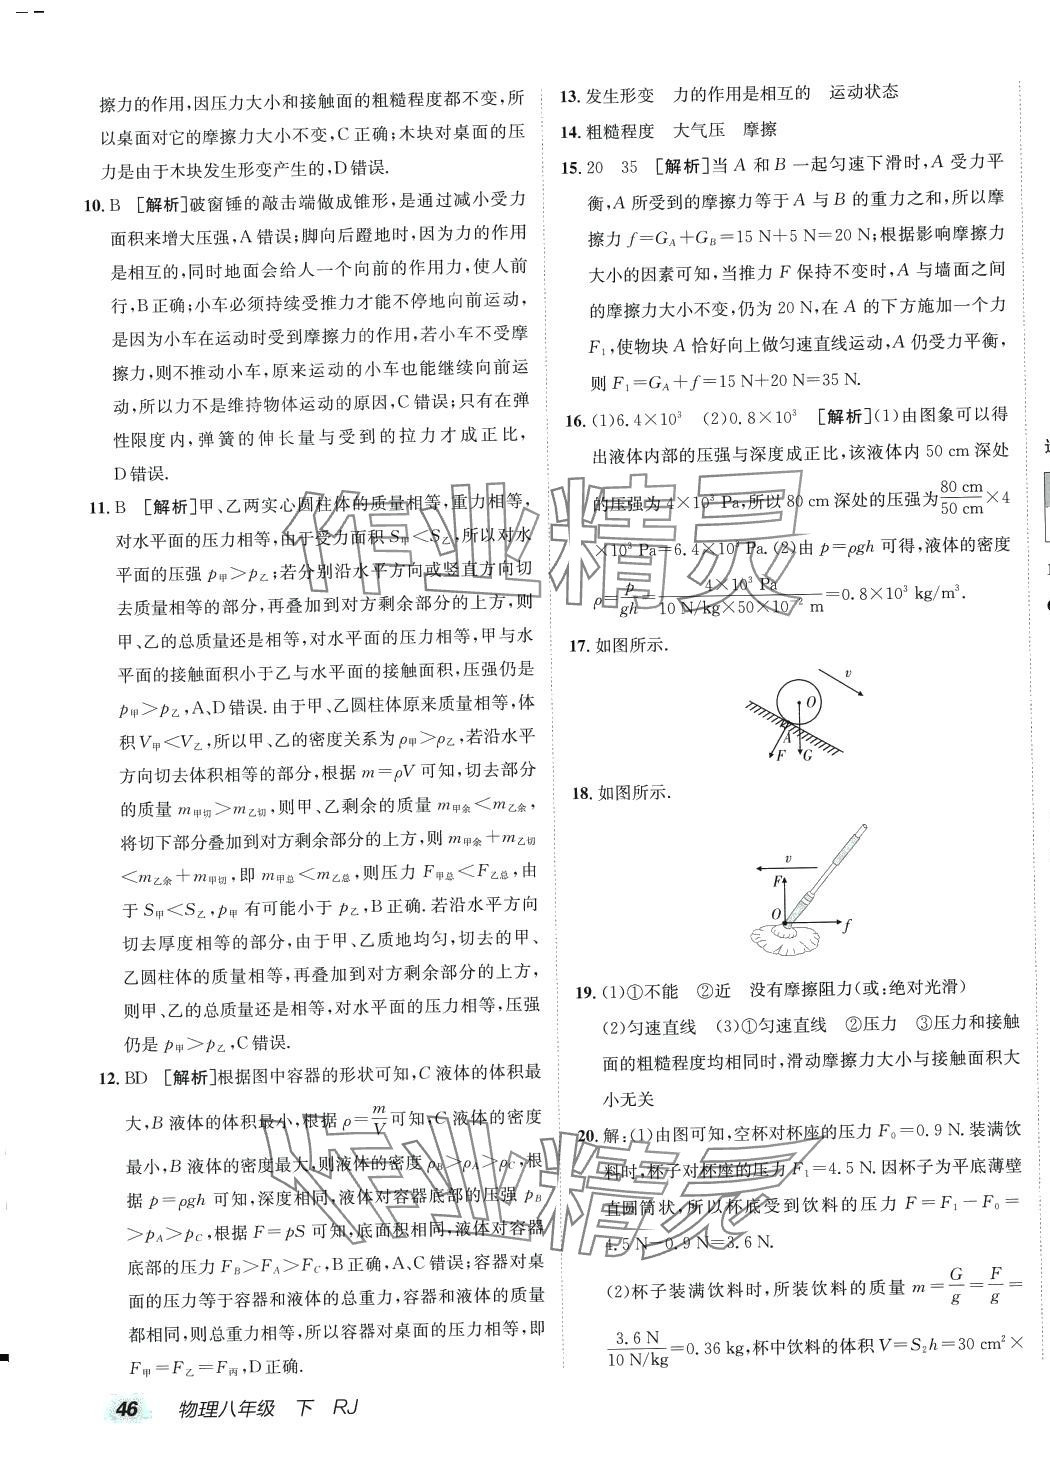 擦力的作用,因压力大小和接触面的粗糙程度都不变,所
以桌面对它的摩擦力大小不变,C正确;木块对桌面的压
力是由于木块发生形变产生的,D错误.
10. B [解析]破窗锤的敲击端做成锥形,是通过减小受力
面积来增大压强,A错误;脚向后蹬地时,因为力的作用
是相互的,同时地面会给人一个向前的作用力,使人前
行,B正确;小车必须持续受推力才能不停地向前运动,
是因为小车在运动时受到摩擦力的作用,若小车不受摩
擦力,则不推动小车,原来运动的小车也能继续向前运
动,所以力不是维持物体运动的原因,C错误;只有在弹
性限度内,弹簧的伸长量与受到的拉力才成正比,
D错误.
11. B [解析]甲、乙两实心圆柱体的质量相等,重力相等,
对水平面的压力相等,由于受力面积S甲<S乙,所以对水
平面的压强p甲>p乙;若分别沿水平方向或竖直方向切
去质量相等的部分,再叠加到对方剩余部分的上方,则
甲、乙的总质量还是相等,对水平面的压力相等,甲与水
平面的接触面积小于乙与水平面的接触面积,压强仍是
p甲>p乙,A、D错误.由于甲、乙圆柱体原来质量相等,体
积V甲<V乙,所以甲、乙的密度关系为ρ甲>ρ乙,若沿水平
方向切去体积相等的部分,根据m=ρV可知,切去部分
的质量m甲切>m乙切,则甲、乙剩余的质量m甲余<m乙余,
将切下部分叠加到对方剩余部分的上方,则m甲余+m乙切
<m乙余+m甲切,即m甲总<m乙总,则压力F甲总<F乙总,由
于S甲<S乙,p甲有可能小于p乙,B正确.若沿水平方向
切去厚度相等的部分,由于甲、乙质地均匀,切去的甲、
乙圆柱体的质量相等,再叠加到对方剩余部分的上方,
则甲、乙的总质量还是相等,对水平面的压力相等,压强
仍是p甲>p乙,C错误.
12. BD [解析]根据图中容器的形状可知,C液体的体积最
大,B液体的体积最小,根据ρ=m/V可知,C液体的密度
最小,B液体的密度最大,则液体的密度ρB>ρA>ρC,根
据p=ρgh可知,深度相同,液体对容器底部的压强pB
>pA>pC,根据F=pS可知,底面积相同,液体对容器
底部的压力FB>FA>FC,B正确,A、C错误;容器对桌
面的压力等于容器和液体的总重力,容器和液体的质量
都相同,则总重力相等,所以容器对桌面的压力相等,即
F甲=F乙=F丙,D正确.
46 物理八年级 下 RJ
13. 发生形变 力的作用是相互的 运动状态
14. 粗糙程度 大气压 摩擦
15. 20 35 [解析]当A和B一起匀速下滑时,A受力平
衡,A所受到的摩擦力等于A与B的重力之和,所以摩
擦力f=GA+GB=15 N+5 N=20 N;根据影响摩擦力
大小的因素可知,当推力F保持不变时,A与墙面之间
的摩擦力大小不变,仍为20 N,在A的下方施加一个力
F1,使物块A恰好向上做匀速直线运动,A仍受力平衡,
则F1=GA+f=15 N+20 N=35 N.
16. (1)6.4×10³ (2)0.8×10³ [解析](1)由图象可以得
出液体内部的压强与深度成正比,该液体内50 cm深处
的压强为4×10³ Pa,所以80 cm深处的压强为80 cm/50 cm×4
×10³ Pa=6.4×10³ Pa.(2)由p=ρgh可得,液体的密度
ρ=p/gh=4×10³ Pa/10 N/kg×50×10⁻² m=0.8×10³ kg/m³.
17. 如图所示.
v
O
A
F G
18. 如图所示.
v
F
O
f
19. (1)①不能 ②近 没有摩擦阻力(或:绝对光滑)
(2)匀速直线 (3)①匀速直线 ②压力 ③压力和接触
面的粗糙程度均相同时,滑动摩擦力大小与接触面积大
小无关
20. 解:(1)由图可知,空杯对杯座的压力F0=0.9 N.装满饮
料时,杯子对杯座的压力F1=4.5 N.因杯子为平底薄壁
直圆筒状,所以杯底受到饮料的压力F=F1-F0=
4.5 N-0.9 N=3.6 N.
(2)杯子装满饮料时,所装饮料的质量m=G/g=F/g=
3.6 N/10 N/kg=0.36 kg,杯中饮料的体积V=S2h=30 cm²×
作业精灵
作业精灵